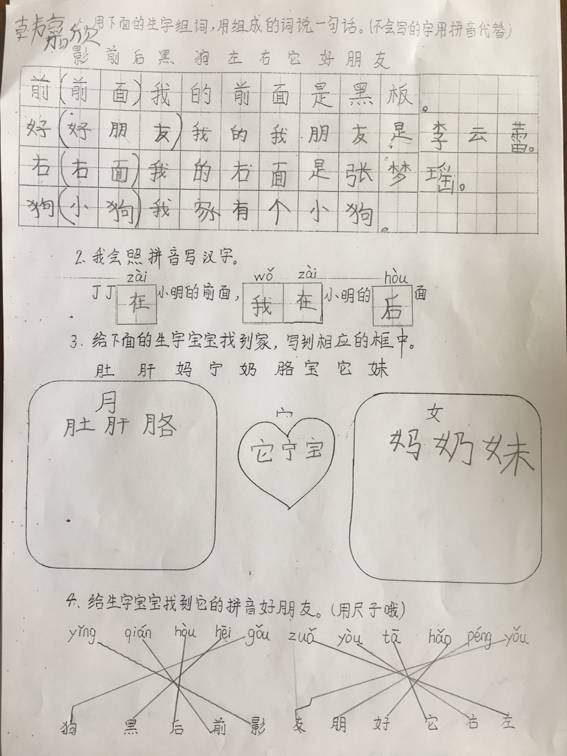 韩嘉欣
用下面的生字组词,用组成的词说一句话。(不会写的字用拼音代替)
影 前 后 黑 狗 左 右 它 好 朋 友
前(前面)我的前面是黑板。
好(好朋友)我的我朋友是李云蕾。
右(右面)我的右面是张梦瑶。
狗(小狗)我家有个小狗。
2.我会照拼音写汉字。
zài wǒ zài hòu
丁丁在小明的前面,我在小明的后面
3.给下面的生字宝宝找到家,写到相应的框中。
肚 肝 妈 宁 奶 胳 宝 它 妹
月
肚 肝 胳
宀
它 宁 宝
女
妈 奶 妹
4.给生字宝宝找到它的拼音好朋友。(用尺子哦)
yǐng qián hòu hēi gǒu zuǒ yòu tā hǎo péng yǒu
狗 黑 后 前 影 友 朋 好 它 右 左